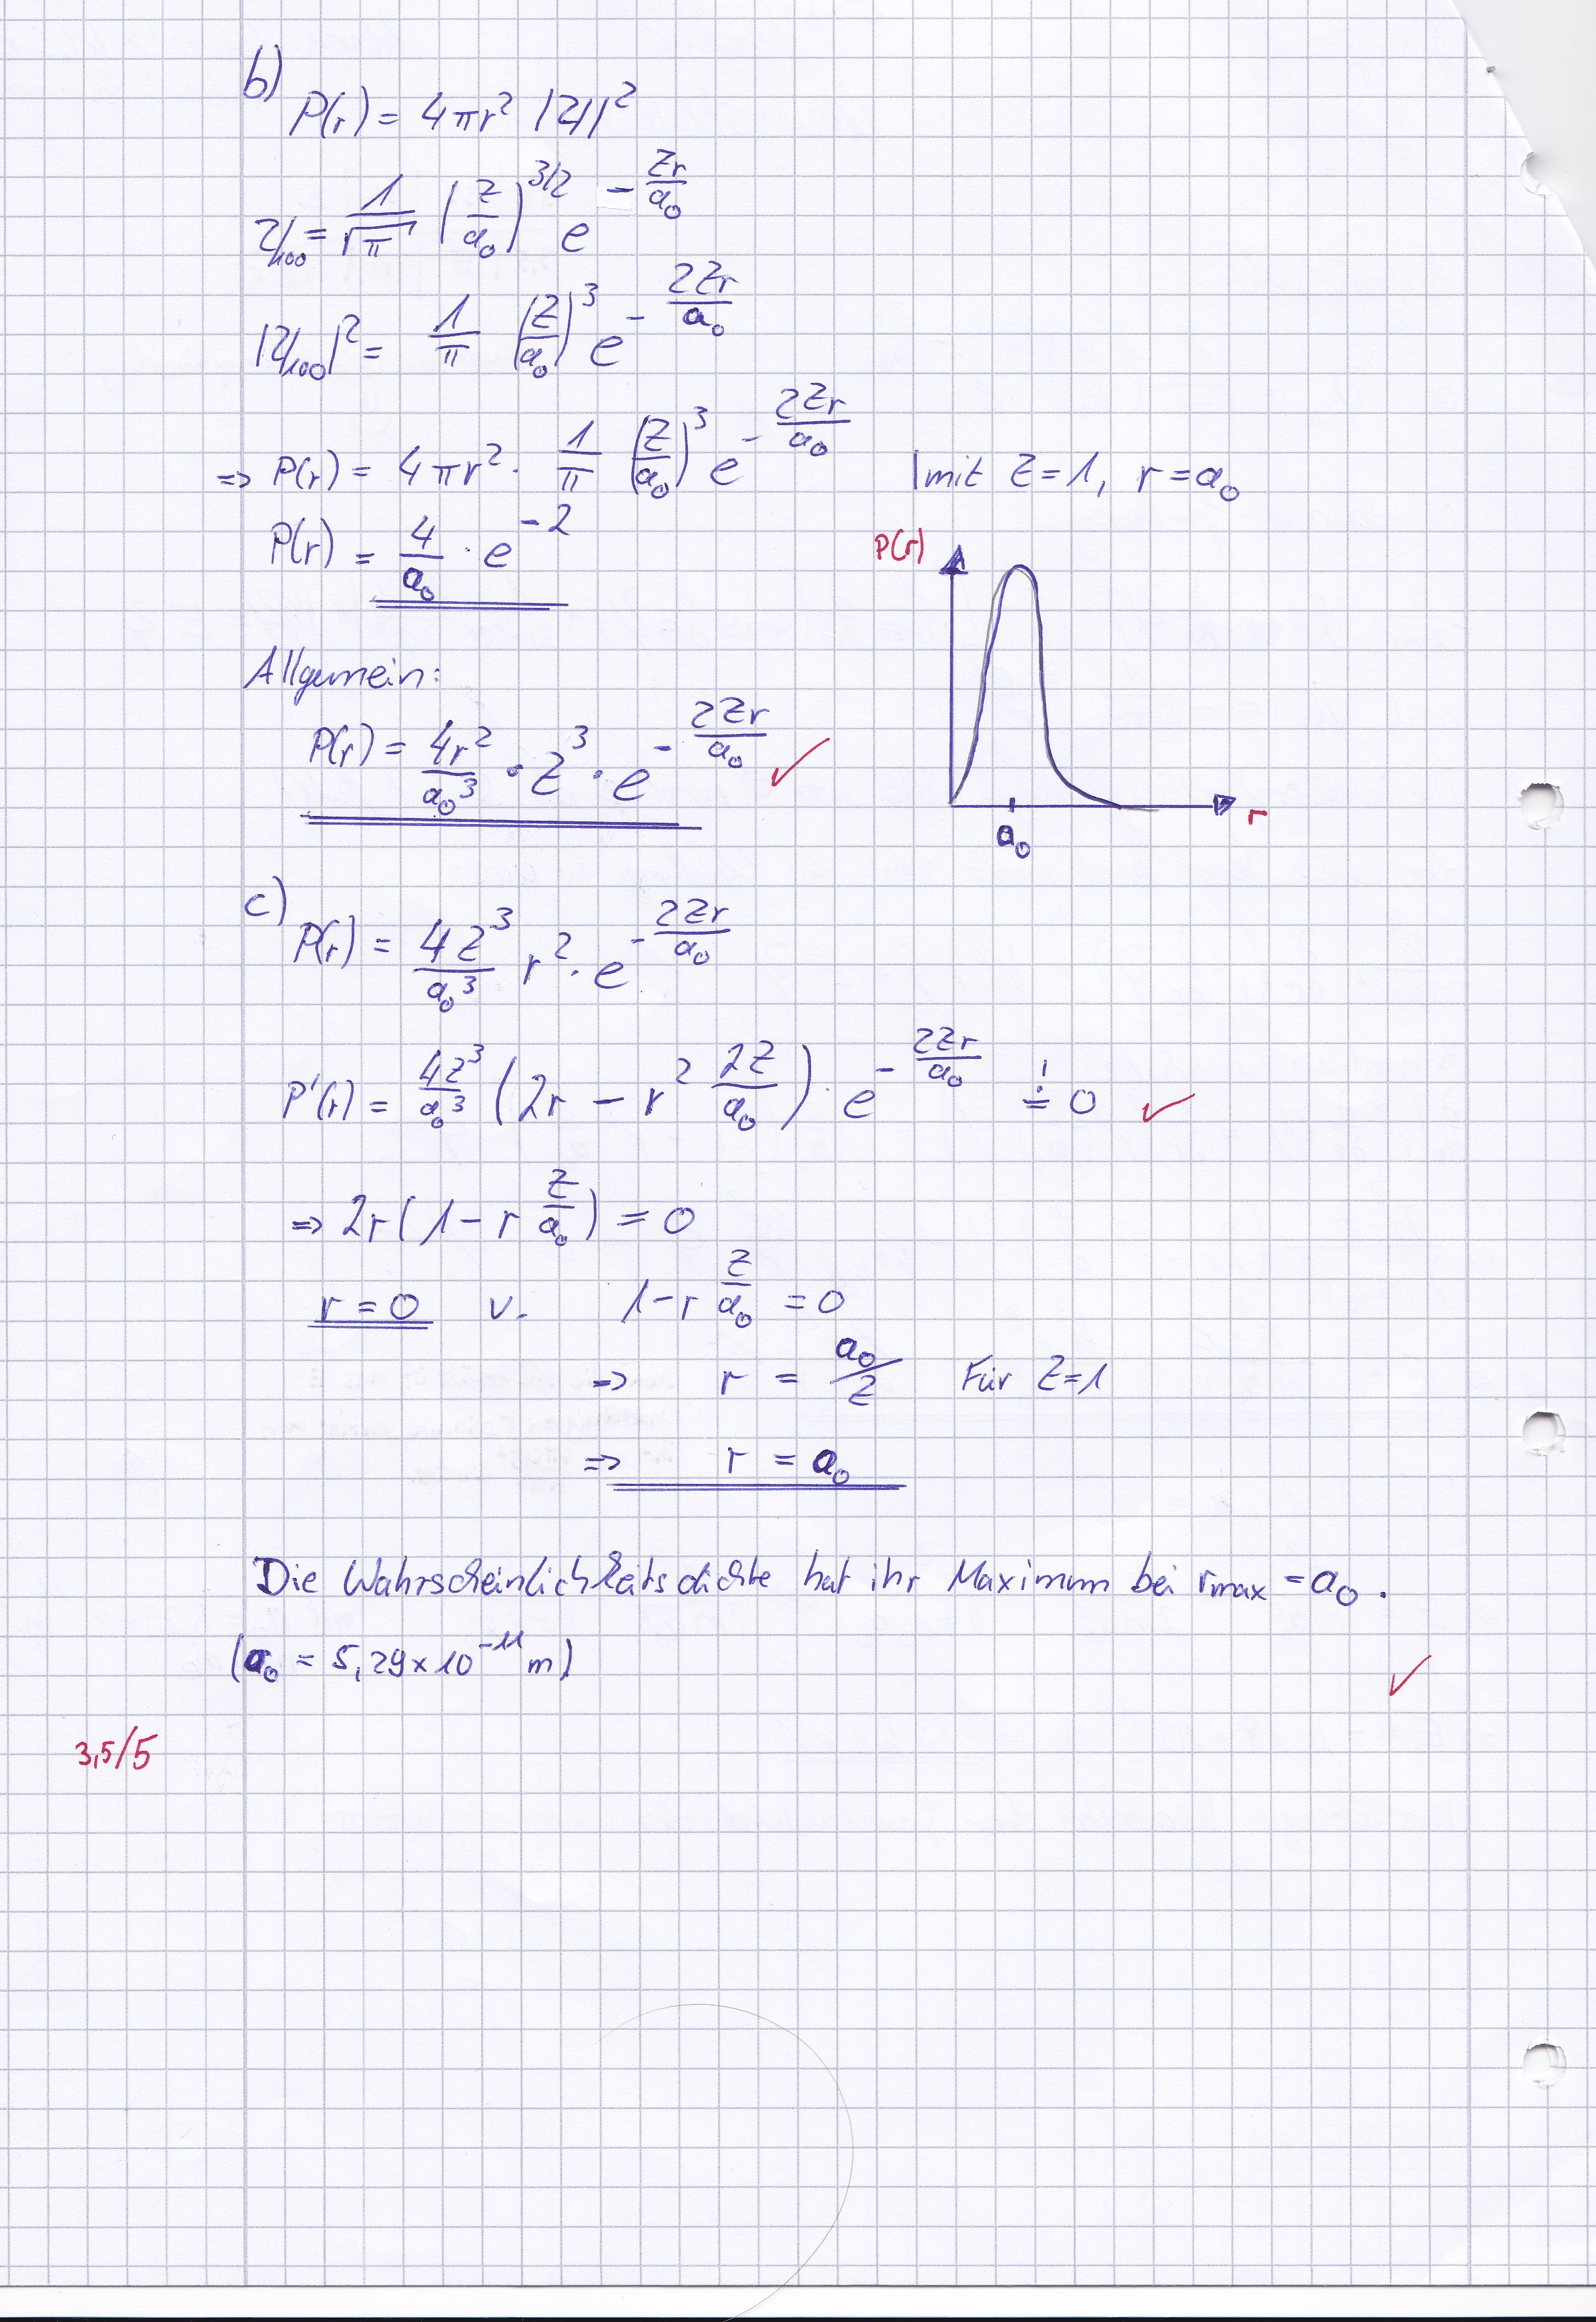 b)
P(r) = 4πr² |ψ|²
ψ₁₀₀ = 1/√π (Z/a₀)^(3/2) e^(-Zr/a₀)
|ψ₁₀₀|² = 1/π (Z/a₀)³ e^(-2Zr/a₀)
=> P(r) = 4πr² · 1/π (Z/a₀)³ e^(-2Zr/a₀) | mit Z=1, r=a₀
P(r) = 4/a₀ · e^(-2)
P(r)
r
a₀
Allgemein:
P(r) = 4r²/a₀³ · Z³ · e^(-2Zr/a₀) ✓
c)
P(r) = 4Z³/a₀³ r² · e^(-2Zr/a₀)
P'(r) = 4Z³/a₀³ (2r - r² 2Z/a₀) · e^(-2Zr/a₀) != 0 ✓
=> 2r(1 - r Z/a₀) = 0
r = 0 v. 1 - r Z/a₀ = 0
=> r = a₀/Z Für Z=1
=> r = a₀
Die Wahrscheinlichkeitsdichte hat ihr Maximum bei rmax = a₀.
(a₀ = 5,29 × 10⁻¹¹ m) ✓
3,5/5